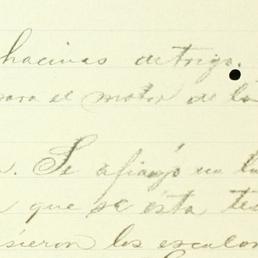 hacinas de trigo.
para el motor de la
Se afianzó un
que se esta
sieron los escalon